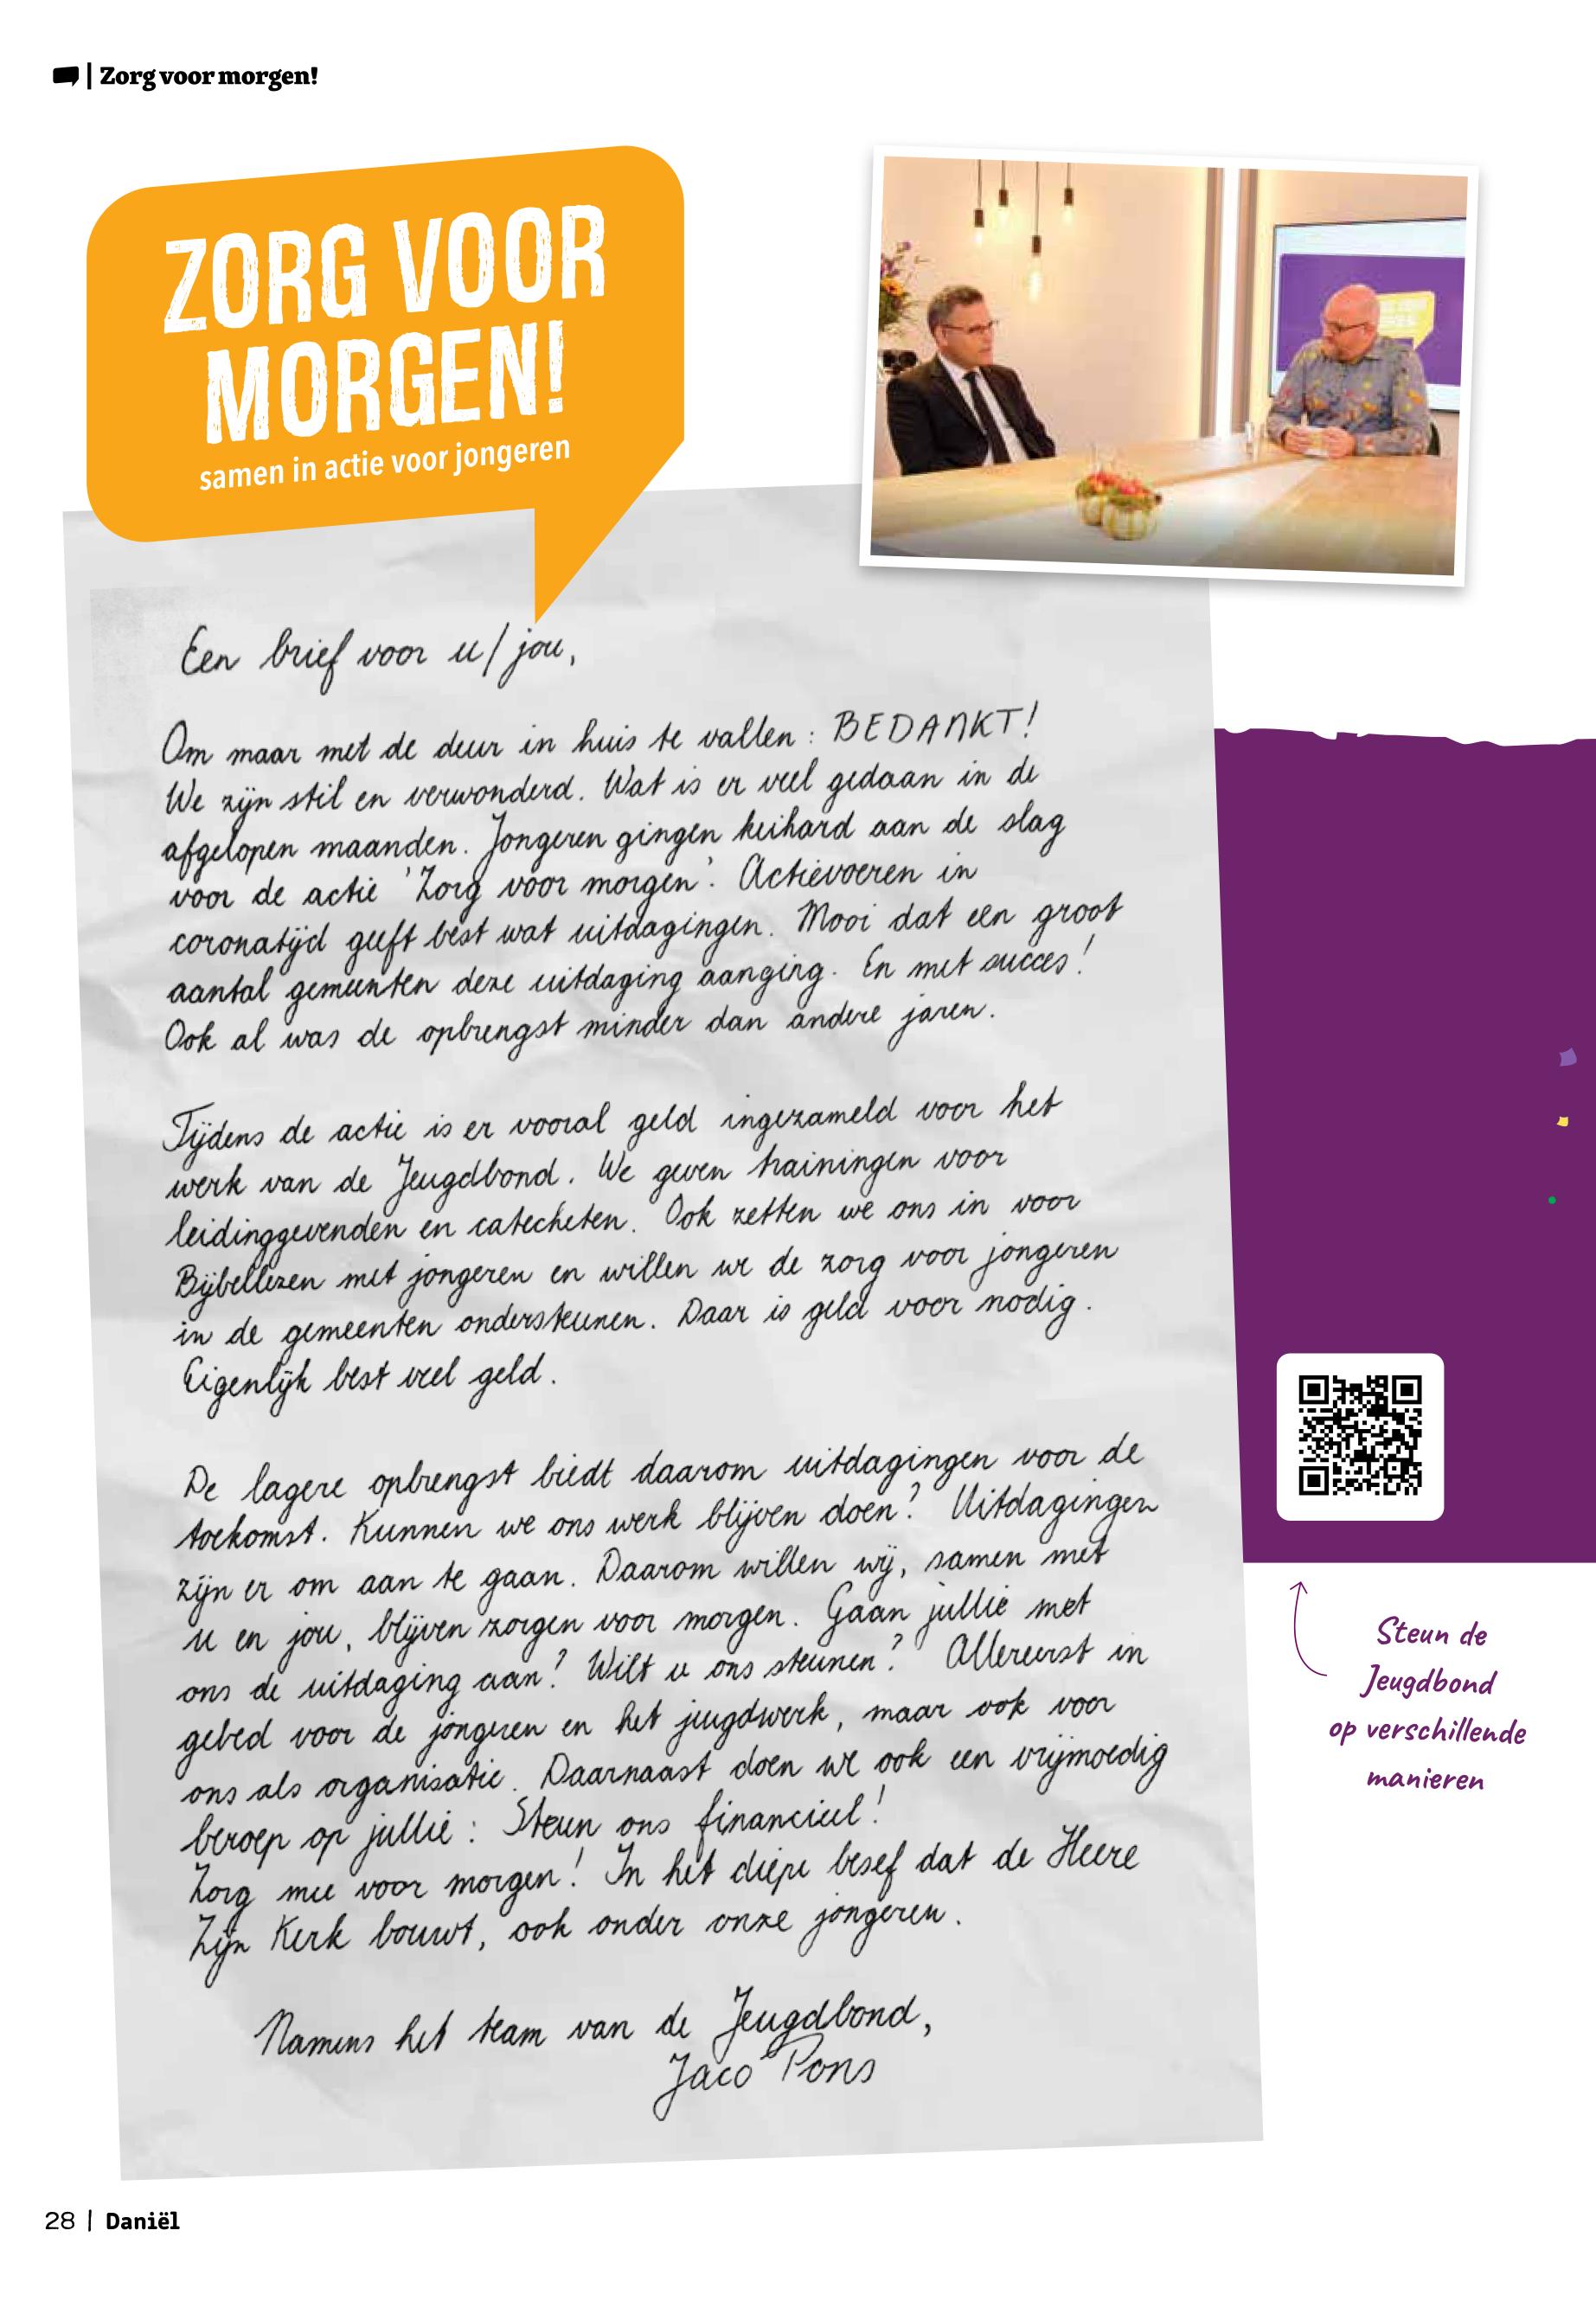 Zorg voor morgen!
ZORG VOOR
MORGEN!
samen in actie voor jongeren
Een brief voor u/jou,
Om maar met de deur in huis te vallen: BEDANKT!
We zijn stil en verwonderd. Wat is er veel gedaan in de
afgelopen maanden. Jongeren gingen keihard aan de slag
voor de actie 'Zorg voor morgen'. Actievoeren in
coronatijd geeft best wat uitdagingen. Mooi dat een groot
aantal gemeenten deze uitdaging aanging. En met succes!
Ook al was de opbrengst minder dan andere jaren.
Tijdens de actie is er vooral geld ingezameld voor het
werk van de Jeugdbond. We geven trainingen voor
leidinggevenden en catecheten. Ook zetten we ons in voor
Bijbellezen met jongeren en willen we de zorg voor jongeren
in de gemeenten ondersteunen. Daar is geld voor nodig.
Eigenlijk best veel geld.
De lagere opbrengst biedt daarom uitdagingen voor de
toekomst. Kunnen we ons werk blijven doen? Uitdagingen
zijn er om aan te gaan. Daarom willen wij, samen met
u en jou, blijven zorgen voor morgen. Gaan jullie met
ons de uitdaging aan? Wilt u ons steunen? Allereerst in
gebed voor de jongeren en het jeugdwerk, maar ook voor
ons als organisatie. Daarnaast doen we ook een vrijmoedig
beroep op jullie: Steun ons financieel!
Zorg mee voor morgen! In het diepe besef dat de Heere
Zijn Kerk bouwt, ook onder onze jongeren.
Namens het team van de Jeugdbond,
Jaco Pons
Steun de
Jeugdbond
op verschillende
manieren
28 | Daniël